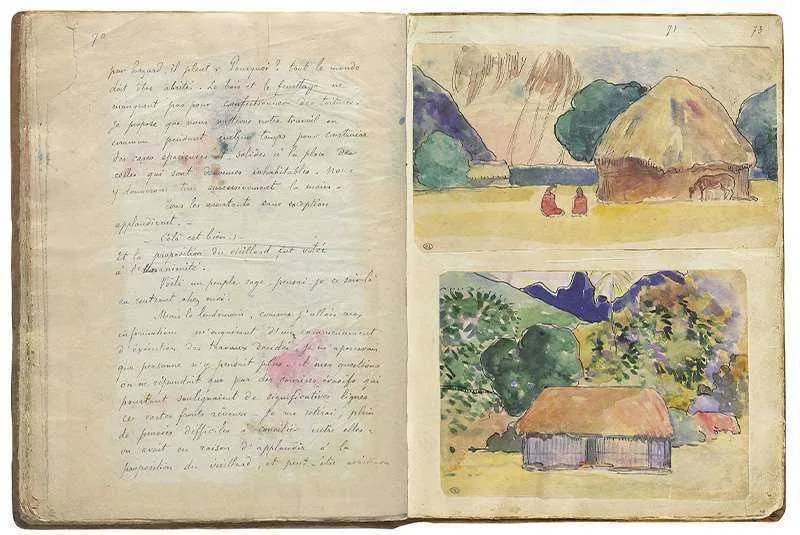 70
par hasard, il pleut. Pourquoi? tout le monde
doit être abrité. Le bois et le feuillage ne
manquent pas pour confectionner des toitures.
Je propose que nous mettions notre travail en
commun pendant quelque temps pour construire
des cases spacieuses et solides à la place de
celles qui sont devenues inhabitables. Nous
y donnerons tous successivement la main. -
Tous les assistants sans exception
applaudirent. -
- Cela est bien! -
Et la proposition du vieillard fut votée
à l'unanimité.
Voilà un peuple sage, pensai-je ce soir-là
en rentrant chez moi.
Mais le lendemain, comme j'allais aux
informations m'enquérant d'un commencement
d'exécution des travaux décidés, je m'aperçus
que personne n'y pensait plus. Et mes questions
on ne répondait que par des sourires évasifs qui
pourtant soulignaient de significatives lignes
ces vastes fronts rêveurs. Je me retirai, plein
de pensées difficiles à concilier entre elles.
on avait eu raison d'applaudir à la
proposition du vieillard, et peut-être
71
73